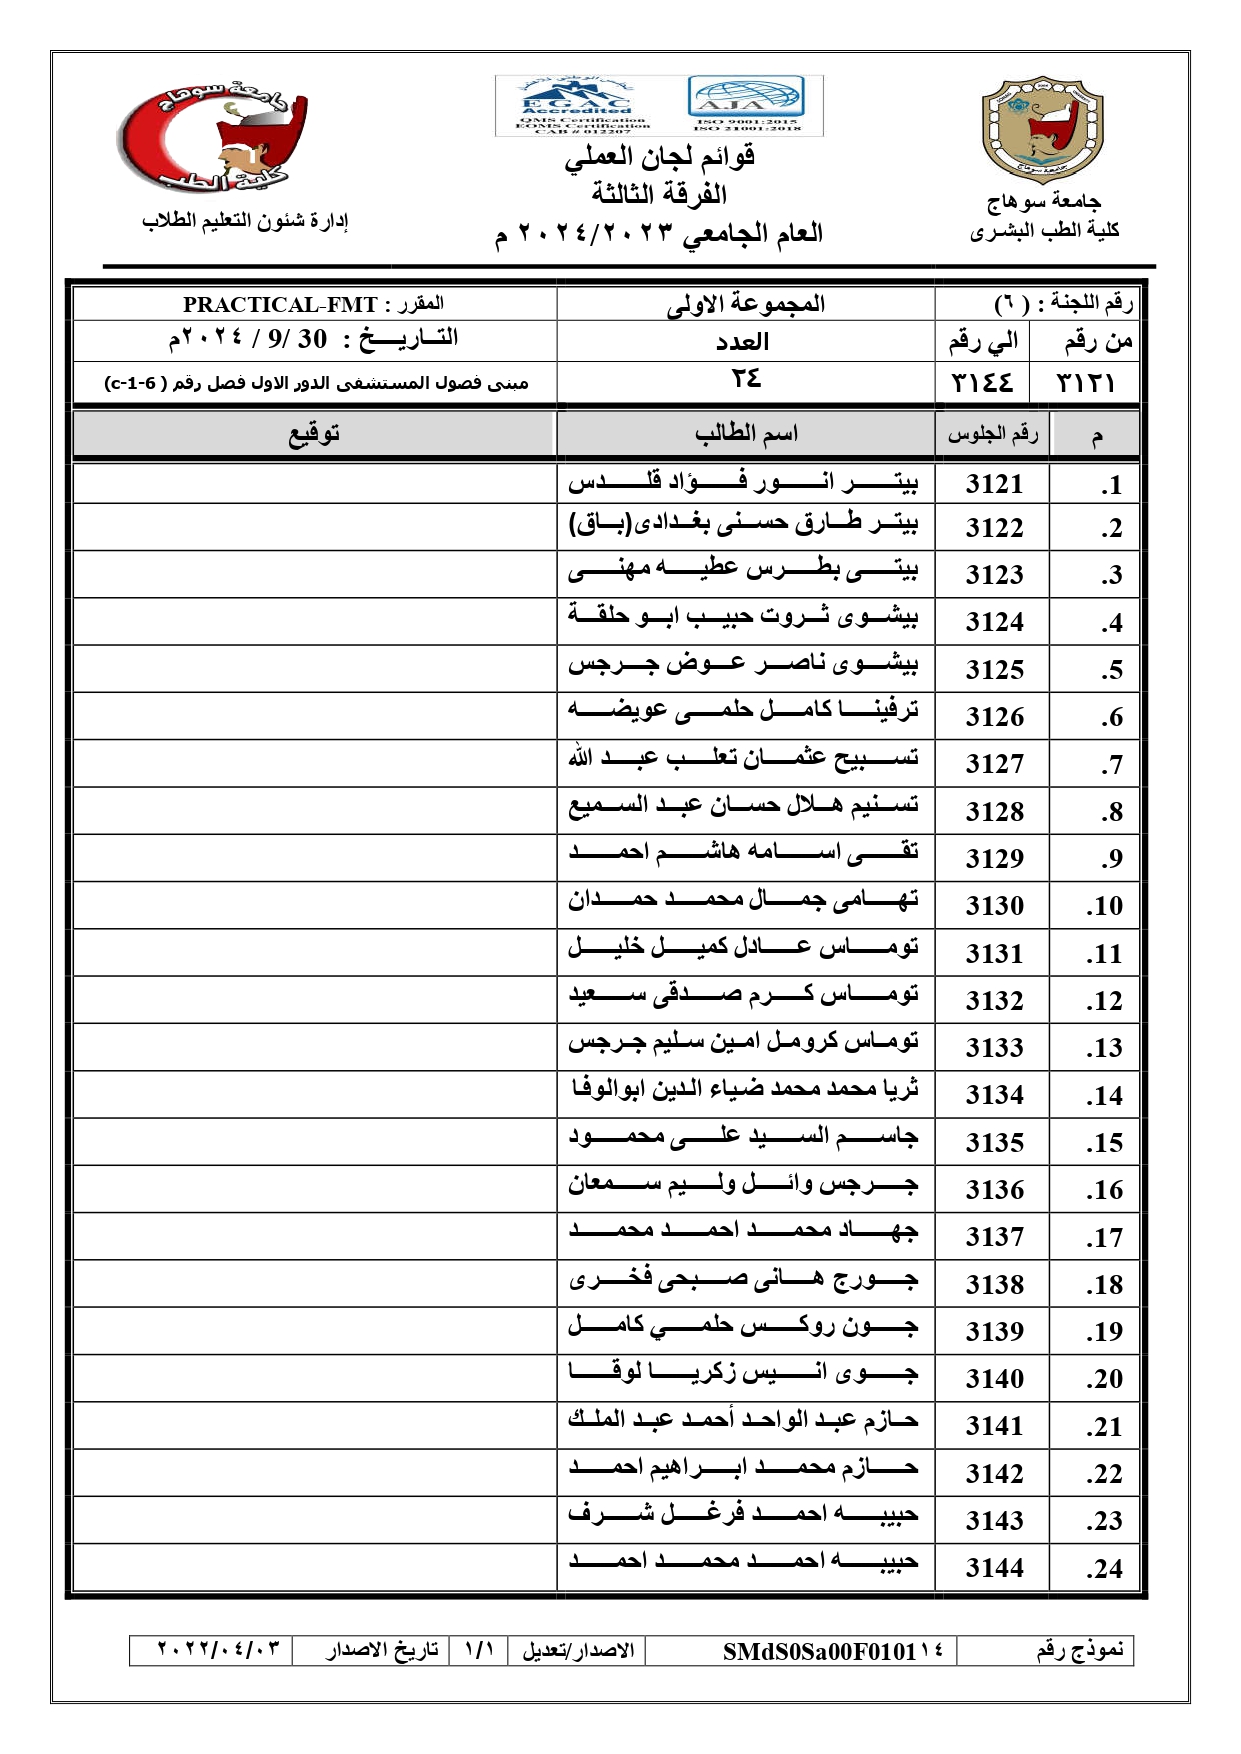 جامعة سوهاج
كلية الطب البشرى
EGAC
Accredited
QMS Certification
EOMS Certification
CAB # 012207
AJA
ISO 9001:2015
ISO 21001:2018
قوائم لجان العملي
الفرقة الثالثة
العام الجامعي ٢٠٢٤/٢٠٢٣ م
جامعة سوهاج
كلية الطب
إدارة شئون التعليم الطلاب
رقم اللجنة : (٦) المجموعة الاولى المقرر : PRACTICAL-FMT
من رقم الي رقم العدد التاريخ : 30 /9 / ٢٠٢٤م
٣١٢١ ٣١٤٤ ٢٤ مبنى فصول المستشفى الدور الاول فصل رقم (c-1-6)
م رقم الجلوس اسم الطالب توقيع
1. 3121 بيتر انور فؤاد قلدس
2. 3122 بيتر طارق حسنى بغدادى(باق)
3. 3123 بيتى بطرس عطيه مهنى
4. 3124 بيشوى ثروت حبيب ابو حلقة
5. 3125 بيشوى ناصر عوض جرجس
6. 3126 ترفينا كامل حلمى عويضه
7. 3127 تسبيح عثمان تعلب عبد الله
8. 3128 تسنيم هلال حسان عبد السميع
9. 3129 تقى اسامه هاشم احمد
10. 3130 تهامى جمال محمد حمدان
11. 3131 توماس عادل كميل خليل
12. 3132 توماس كرم صدقى سعيد
13. 3133 توماس كرومل امين سليم جرجس
14. 3134 ثريا محمد محمد ضياء الدين ابوالوفا
15. 3135 جاسم السيد على محمود
16. 3136 جرجس وائل وليم سمعان
17. 3137 جهاد محمد احمد محمد
18. 3138 جورج هانى صبحى فخرى
19. 3139 جون روكس حلمي كامل
20. 3140 جوى انيس زكريا لوقا
21. 3141 حازم عبد الواحد أحمد عبد الملك
22. 3142 حازم محمد ابراهيم احمد
23. 3143 حبيبه احمد فرغل شرف
24. 3144 حبيبه احمد محمد احمد
نموذج رقم SMdS0Sa00F0101١٤ الاصدار/تعديل ١/١ تاريخ الاصدار ٢٠٢٢/٠٤/٠٣